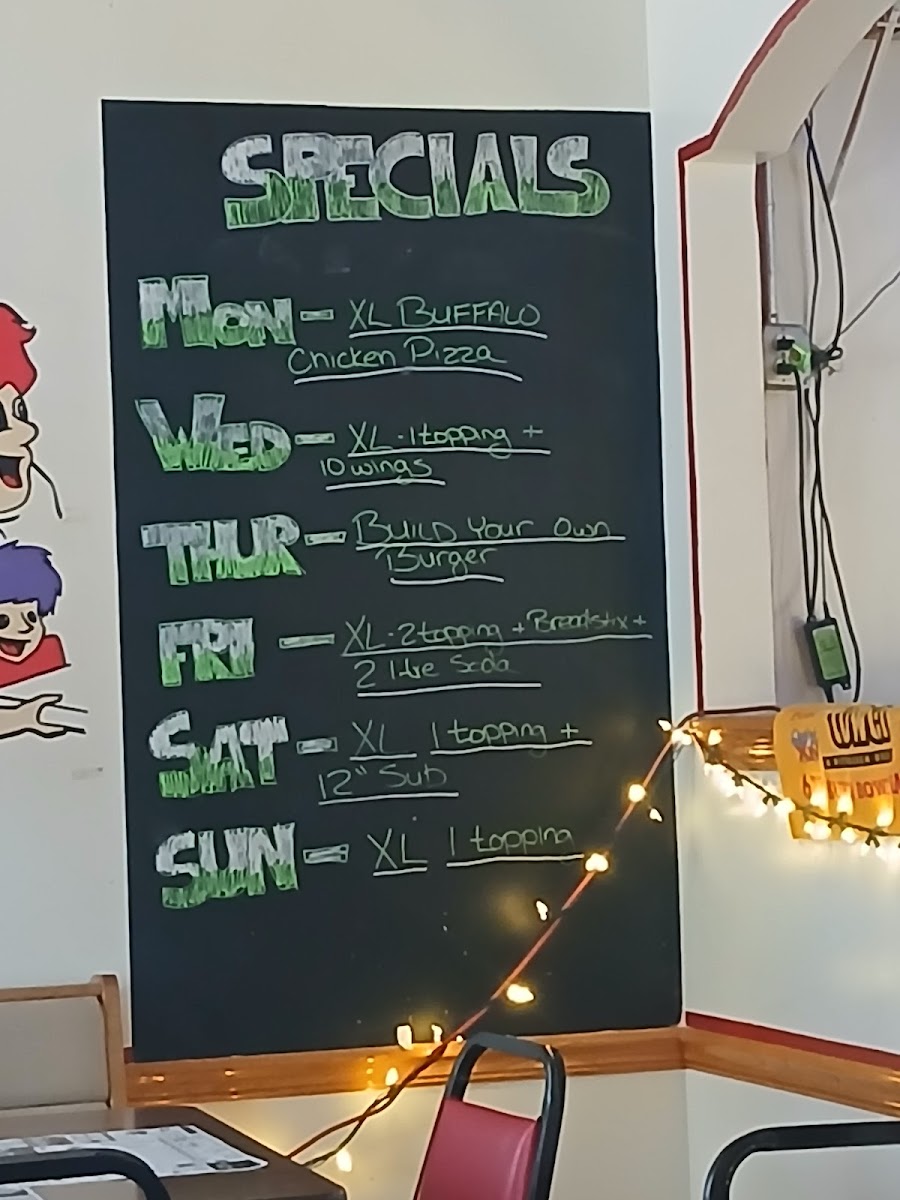 SPECIALS
MON - XL BUFFALO
Chicken Pizza
WED - XL - 1 topping +
10 wings
THUR - BUILD Your Own
Burger
FRI - XL - 2 topping + Breadstix +
2 litre Soda
SAT - XL 1 topping +
12" Sub
SUN - XL 1 topping